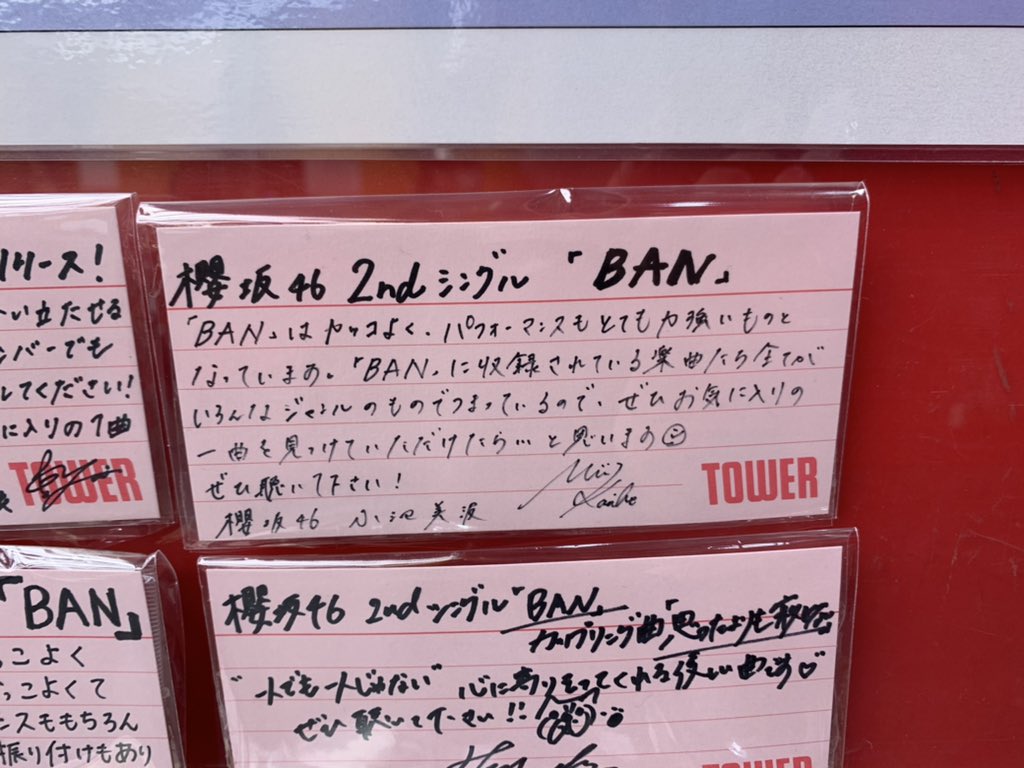 リリース！
い立たせる
ンバーでも
してください！
に入りの1曲
TOWER
櫻坂46 2ndシングル「BAN」
「BAN」はカッコよく、パフォーマンスもとても力強いものと
なっています。「BAN」に収録されている楽曲たち全てが
いろんなジャンルのものでつまっているので、ぜひお気に入りの
一曲を見つけていただけたら…と思います
ぜひ聴いて下さい！
櫻坂46 小池美波
TOWER
「BAN」
っこよく
っこよくて
ンスももちろん
振り付けもあり
櫻坂46 2ndシングル「BAN」
カップリング曲「思ったよりも寂しくない」
"一人でも一人じゃない" 心に寄りそってくれる優しい曲です♡
ぜひ聴いて下さい!!
TOWER